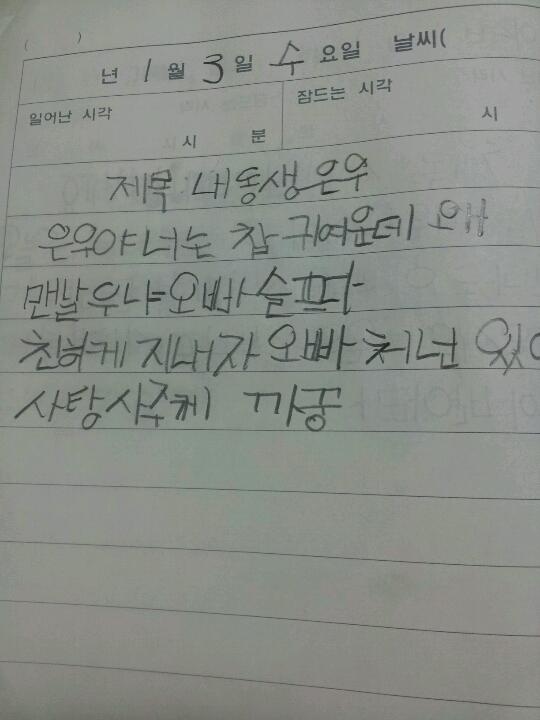 ( )
년 1 월 3 일 수 요일 날씨(
일어난 시각 잠드는 시각
시 분 시
제목 내동생은우
은우야너는 참 귀여운데 왜
맨날우냐오빠슬프다
친하게 지내자 오빠 처넌 있어
사탕사주케 까꿍